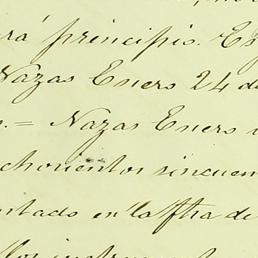 rá principio. Es
Nazas Enero 24 de
= Nazas Enero
chocientos cincuen
ntado en la ftra de